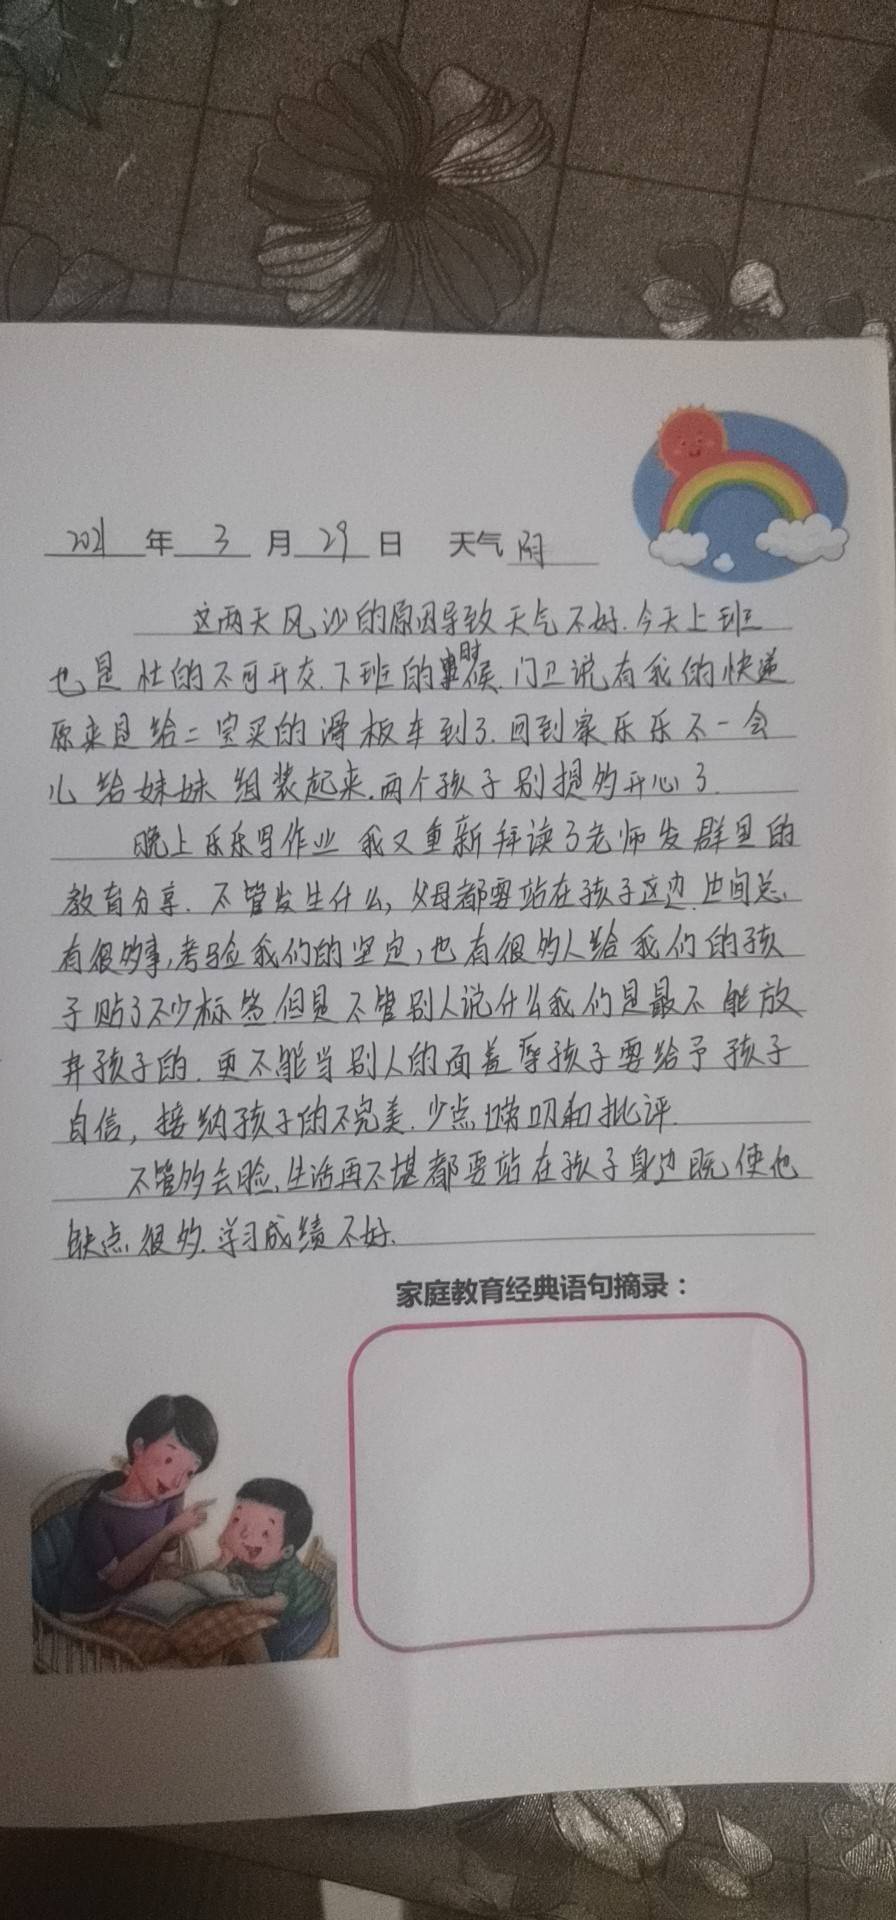 2021年3月29日 天气阴
这两天风沙的原因导致天气不好.今天上班
也是忙的不可开交.下班的时候.门卫说有我的快递
原来是给二宝买的滑板车到了.回到家乐乐不一会
儿给妹妹组装起来.两个孩子别提多开心了.
晚上乐乐写作业 我又重新拜读了老师发群里的
教育分享.不管发生什么,父母都要站在孩子这边.世间总,
有很多事,考验我们的坚定,也有很多人给我们的孩
子贴了不少标签.但是不管别人说什么我们是最不能放
弃孩子的.更不能当别人的面羞辱孩子要给予孩子
自信,接纳孩子的不完美.少点唠叨和批评.
不管多丢脸,生活再不堪都要站在孩子身边既使他
缺点很多.学习成绩不好.
家庭教育经典语句摘录：